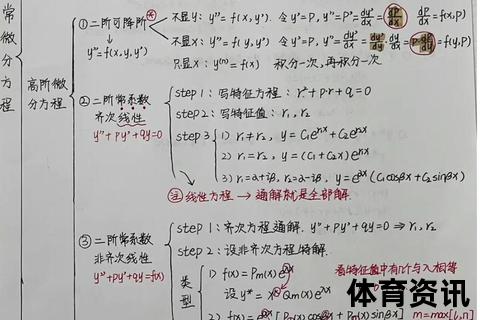 常微分方程
高阶微分方程
①二阶可降阶
y''=f(x,y,y')
不显y: y''=f(x,y'). 令y'=P, y''=P'=dy'/dx=dP/dx dP/dx=f(x,P)
不显x: y''=f(y,y') 令y'=P, y''=dy'/dx=dy'/dy·dy/dx=P·dP/dy=f(y,P)
只显x: y⁽ⁿ⁾=f(x) 积分一次,再积分一次
②二阶常系数
齐次线性
y''+py'+qy=0
step1: 写特征方程: r²+p·r+q=0
step2: 写特征值: r₁,r₂
step3 1) r₁≠r₂, y=C₁e^{r₁x}+C₂e^{r₂x}
2) r₁=r₂, y=(C₁+C₂x)e^{r₁x}
3) r₁=α+iβ, r₂=α-iβ, y=e^{αx}(C₁cosβx+C₂sinβx)
注 线性方程→通解就是全部解
③二阶常系数
非齐次线性
y''+py'+qy=f(x)
step1: 齐次方程通解. y''+py'+qy=0 ⇒ r₁,r₂
step2: 设非齐次方程特解.
类型
1) f(x)=Pm(x)e^{λx}
看特征值中有几个与λ相等
设y*=x^k Qm(x)e^{λx}
2) f(x)=e^{αx}[Pn(x)cosβx+Pn(x)sinβx] m=max{l,n}
体育资讯